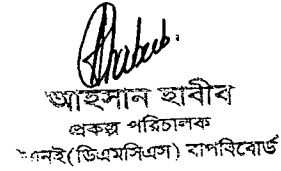 আহসান হাবীব
প্রকল্প পরিচালক
(ডিএমসিএস) বাপবিবোর্ড